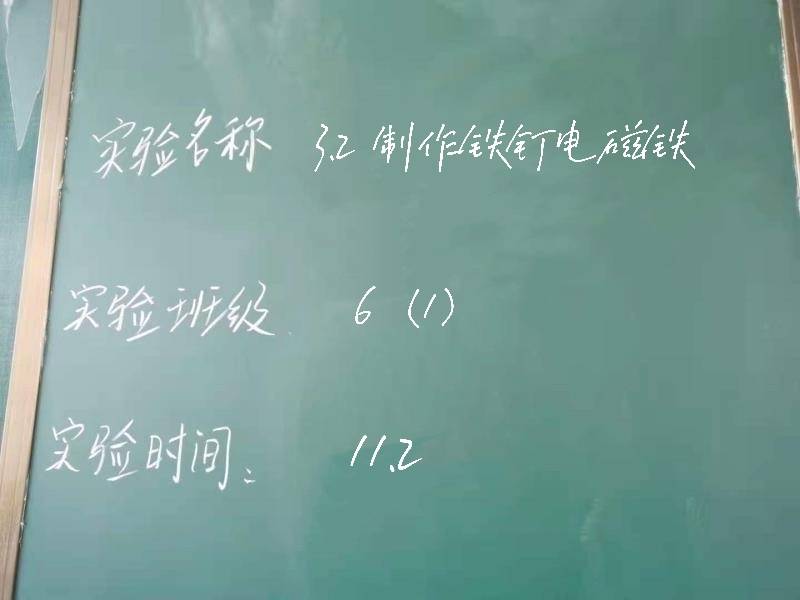 实验名称 3.2 制作铁钉电磁铁
实验班级 6 (1)
实验时间: 11.2